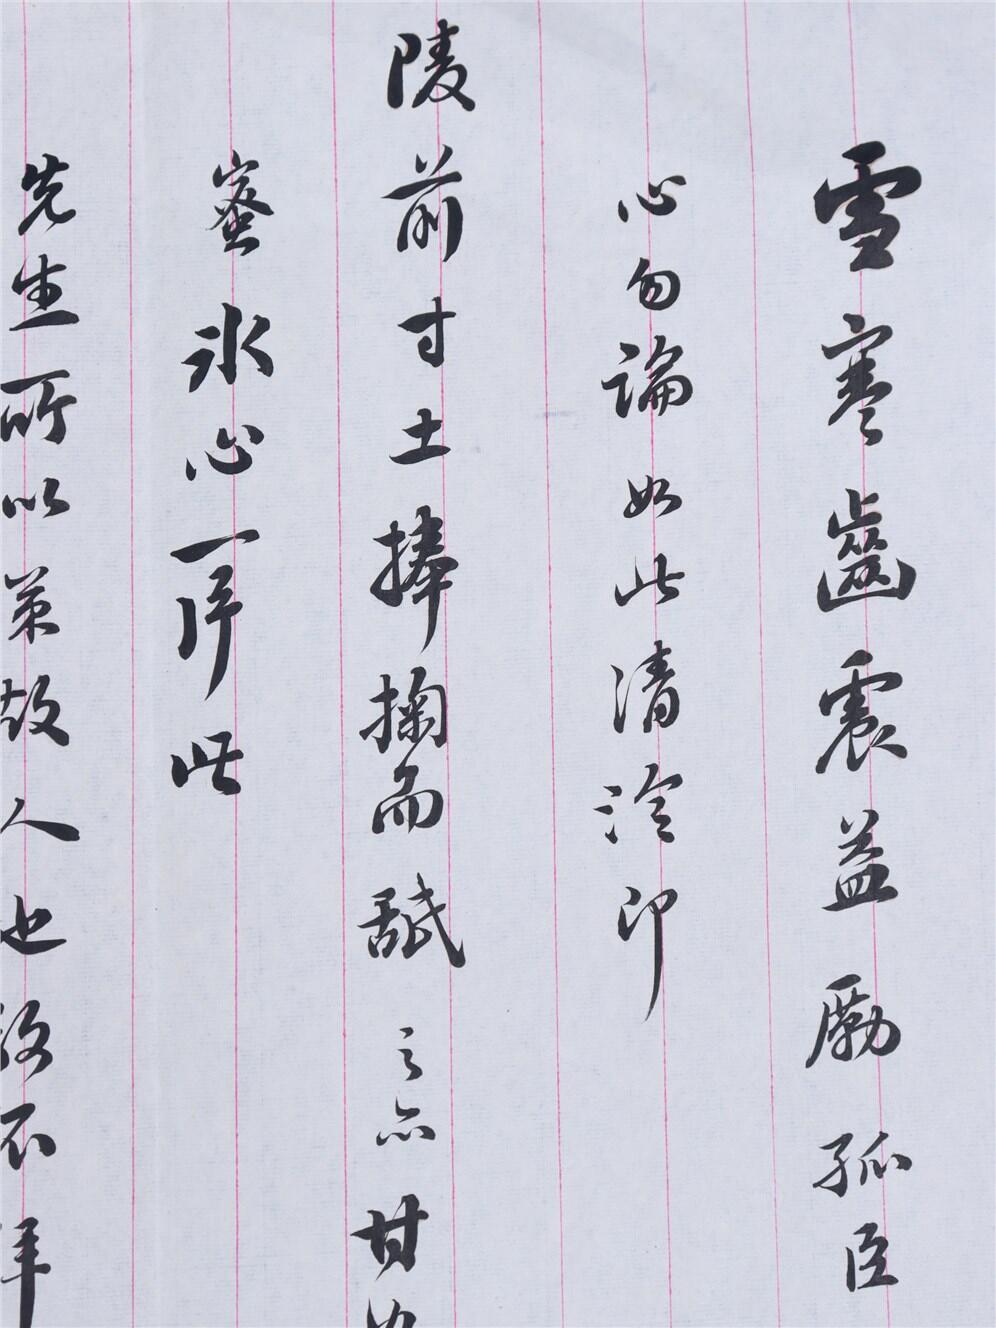 雪寒齒震益勵孤臣
心勿論如此清冷印
陵前寸土捧掬而舐之亦甘如
蜜冰心一片此
先生所以策故人也後不拜